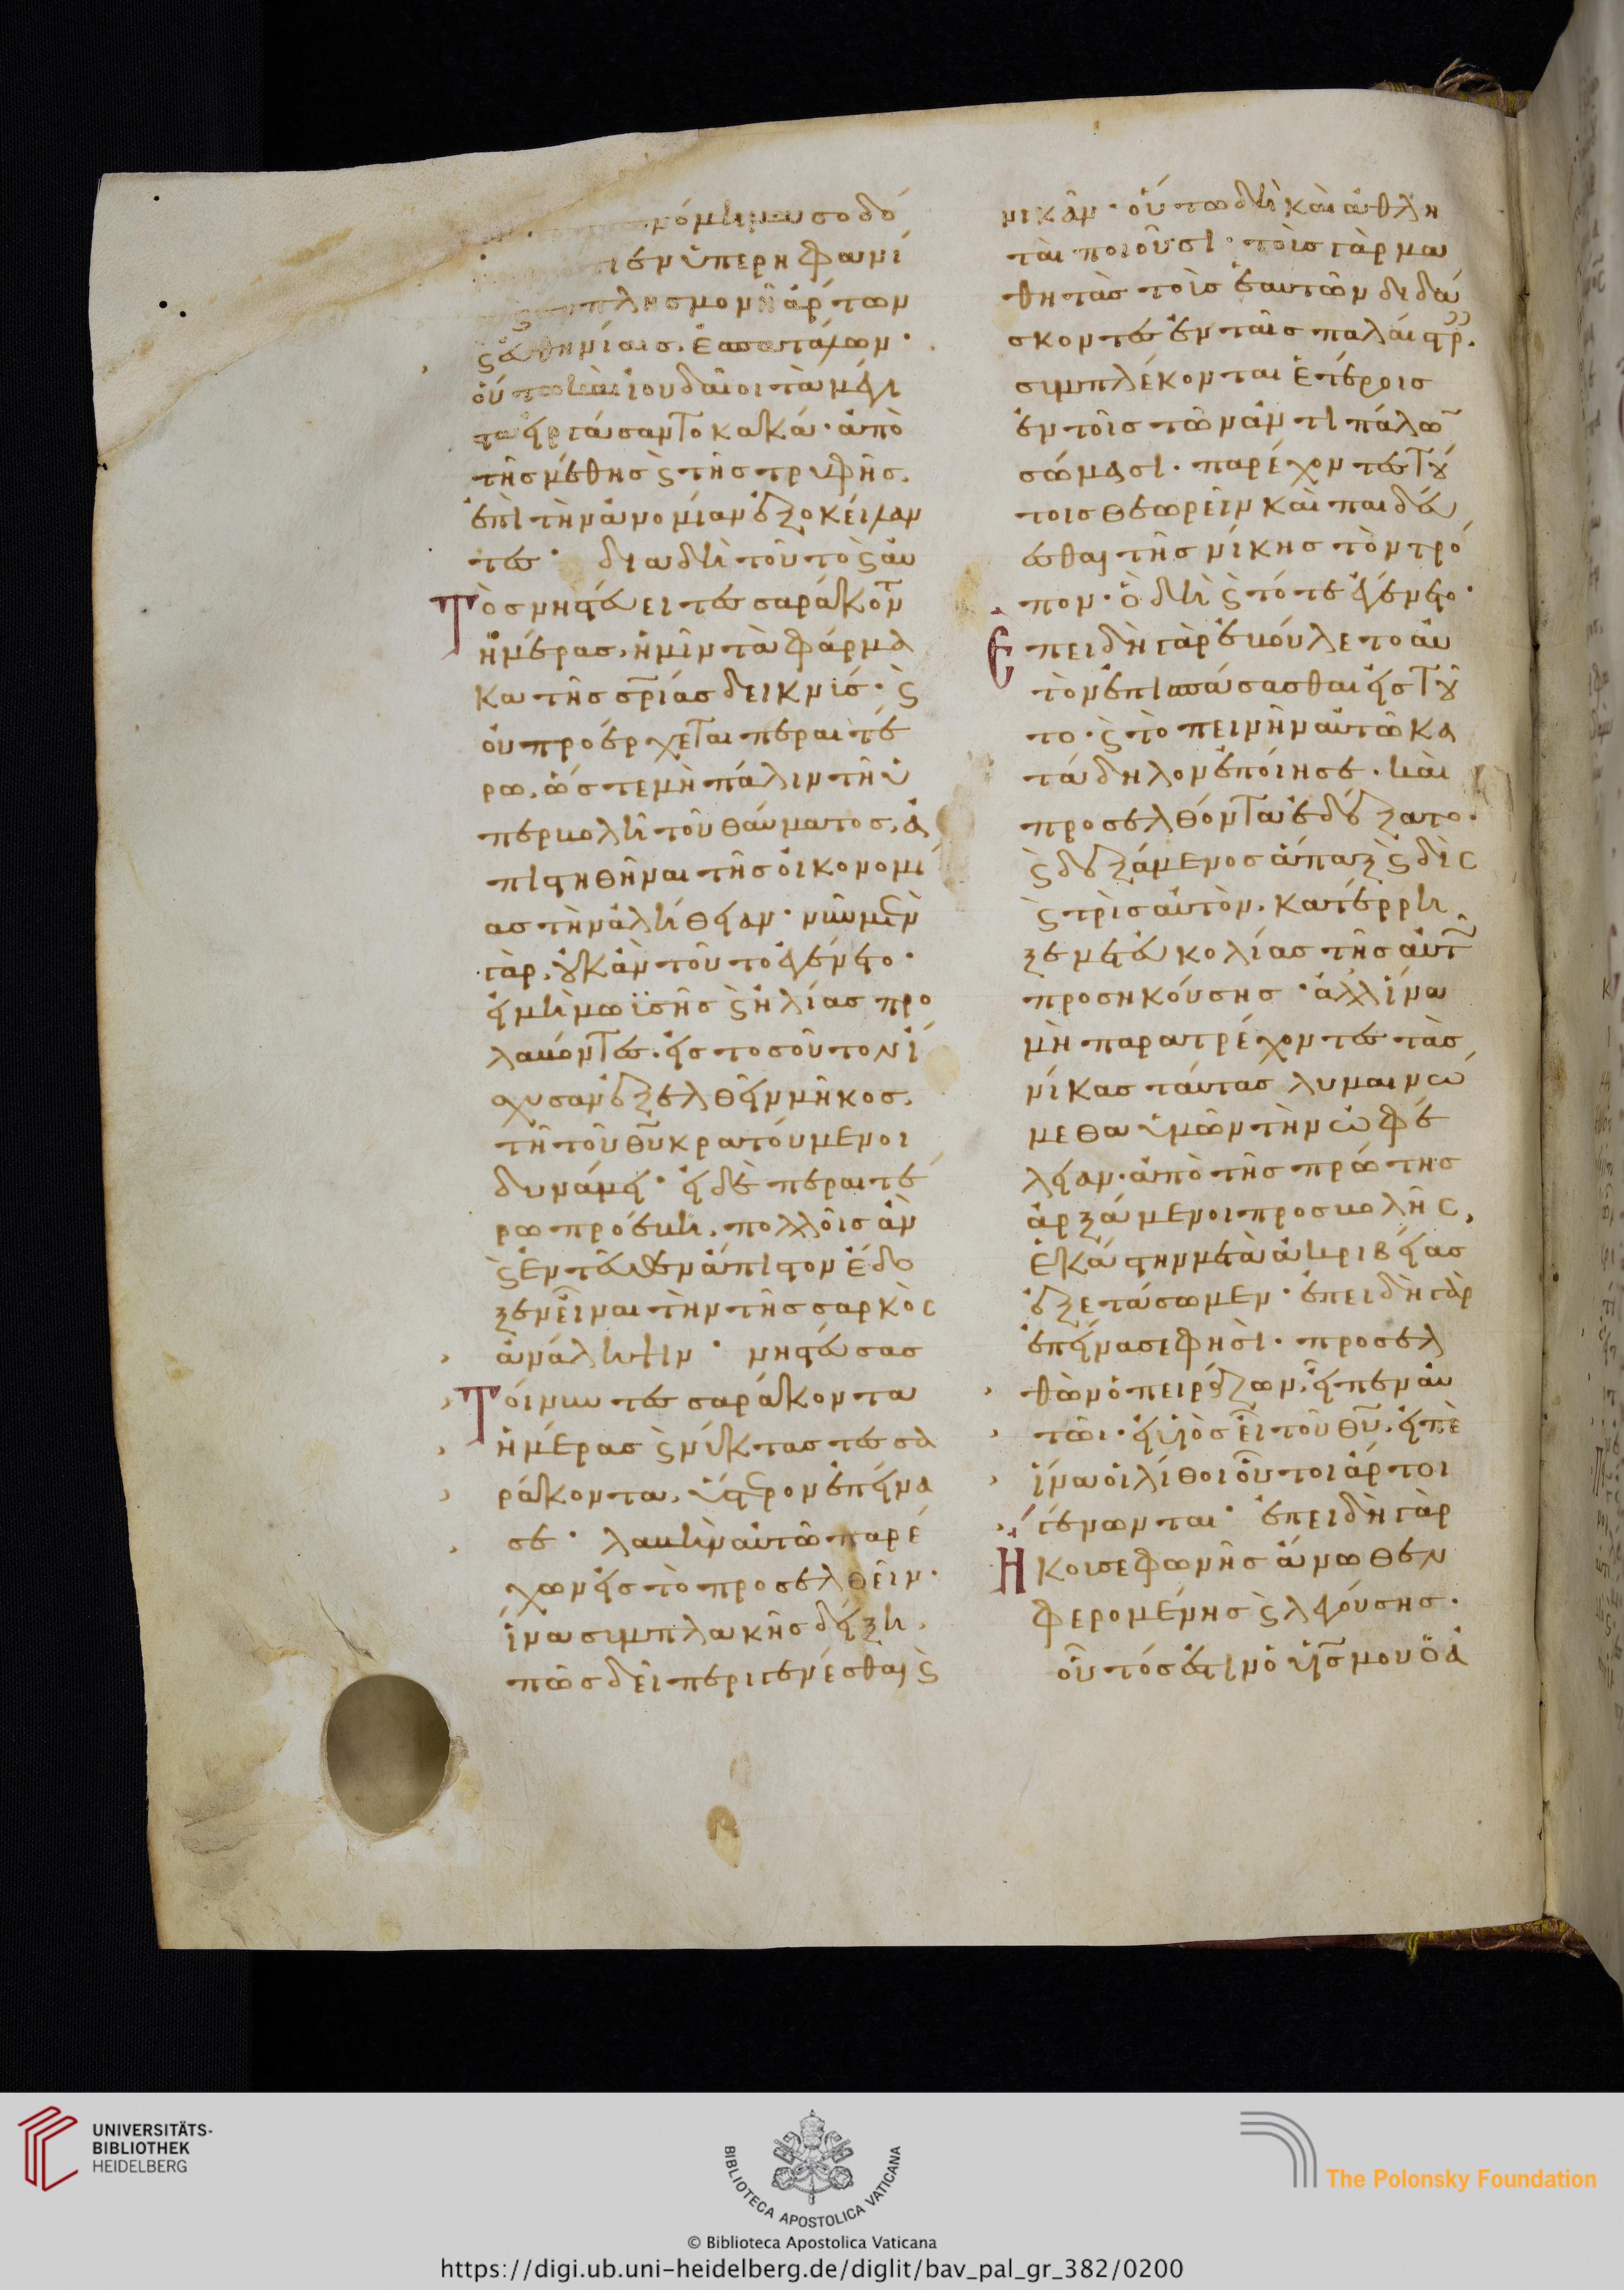 νόμημα σοδό
ἐν ὑπερηφανί
πλησμονῆ ἄρτων
ϛ εὐθηνίαις, ἐσπατάλων·
οὕτω καὶ ἰουδαῖοι τὰ μέγι
στα εἰργάσαντο κακά· ἀπὸ
τῆς μέθης ϛ τῆς τρυφῆς,
ἐπὶ τὴν ἀνομίαν ἐξοκείλαν
τες· διὰ δὴ τοῦτο ϛ αὐ
Τὸς νηστεύει τεσσαράκον̅
ἡμέρας, ἡμῖν τὰ φάρμα
κα τῆς σ̅ρ̅ίας δεικνύς· ϛ
οὐ προέρχεται περαιτέ
ρω, ὥστε μὴ πάλιν τῆ ὑ
περβολῆ τοῦ θαύματος, ἀ
πιστηθῆναι τῆς οἰκονομί
ας τὴν ἀλήθειαν· νῦν μὲν
γὰρ, οὐκ ἂν τοῦτο γένοιτο·
εἰ μὴ μωϊσῆς ϛ ἠλίας προ
λαβόντες, εἰς τοσοῦτον ἴ
σχυσαν ἐξελθεῖν μῆκος,
τῆ τοῦ θ̅υ̅ κρατούμενοι
δυνάμει· εἰ δὲ περαιτέ
ρω προέβη, πολλοῖς ἂν
ϛ ἐντεῦθεν ἄπιστον ἔδο
ξεν εἶναι τὴν τῆς σαρκὸς
ἀνάληψιν· νηστεύσας
Τοίνυν τεσσαράκοντα
ἡμέρας ϛ νύκτας τεσσα
ράκοντα, ὕστερον ἐπείνα
σε· λαβὴν αὐτῶ παρέ
χων εἰς τὸ προσελθεῖν·
ἵνα συμπλακῆς δείξη,
πῶς δεῖ περιγενέσθαι ϛ
νικᾶν· οὕτω δὴ καὶ ἀθλη
ταὶ ποιοῦσι· τοὺς γὰρ μα
θητὰς τοὺς ἑαυτῶν διδά
σκοντες ἐν ταῖς παλαίστρ,
συμπλέκονται ἑτέροις
ἐν τοῖς τῶν ἀντιπάλω̅
σώμασι· παρέχοντες τού
τοις θεωρεῖν καὶ παιδεύ
εσθαι τῆς νίκης τὸν τρό
πον· ὃ δὴ ϛ τότε γέγονε·
Ἐπειδὴ γὰρ ἐβούλετο αὐ
τὸν ἐπισπάσασθαι εἰς τοῦ
το· ϛ τὸ πεινῆν αὐτῶ κα
τάδηλον ἐποίησε· καὶ
προσελθόντα ἐδέξατο·
ϛ δεξάμενος ἅπαξ ϛ δὶς
ϛ τρὶς αὐτὸν, κατέρρη
ξε μετ' εὐκολίας τῆς αὐτ̅
προσηκούσης· ἀλλ' ἵνα
μὴ παρατρέχοντες τὰς
νίκας ταύτας λυμαινώ
μεθα ὑμῶν τὴν ὠφέ
λειαν· ἀπὸ τῆς πρώτης
ἀρξάμενοι προσβολῆς,
ἑκάστην μετὰ ἀκριβείας
ἐξετάσωμεν· ἐπειδὴ γὰρ
ἐπείνασε φησὶ· προσελ
θὼν ὁ πειράζων, εἶπεν αὐ
τῶι· εἰ υἱὸς εἶ τοῦ θ̅υ̅, εἰπὲ
ἵνα οἱ λίθοι οὗτοι ἄρτοι
γένωνται· ἐπειδὴ γὰρ
Ἤκουσε φωνῆς ἄνωθεν
φερομένης ϛ λεγούσης·
οὗτός ἐστιν ὁ υ̅ς̅ μου ὁ ἀ
UNIVERSITÄTS-
BIBLIOTHEK
HEIDELBERG
BIBLIOTECA APOSTOLICA VATICANA
© Biblioteca Apostolica Vaticana
The Polonsky Foundation
https://digi.ub.uni-heidelberg.de/diglit/bav_pal_gr_382/0200